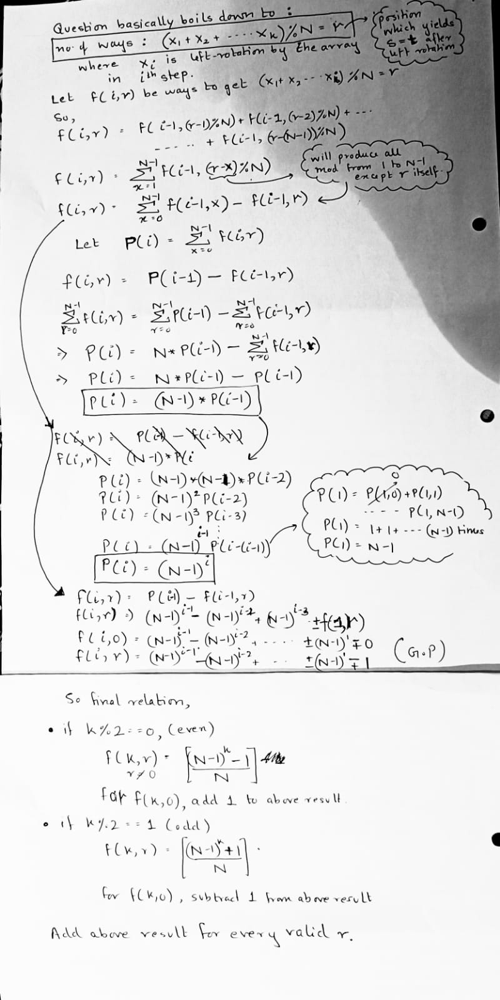 Question basically boils down to :
no. of ways : (x₁ + x₂ + ····· xₖ) % N = r
position
which yields
s = t after
left rotation
where xᵢ is left-rotation by the array
in iᵗʰ step.
Let f(i,r) be ways to get (x₁+x₂ ··· xᵢ) % N = r
So,
f(i,r) = f(i-1,(r-1)%N) + f(i-1,(r-2)%N) + ···
····· + f(i-1,(r-(N-1))%N)
f(i,r) = Σ_{x=1}^{N-1} f(i-1,(r-x)%N)
will produce all
mod from 1 to N-1
except r itself
f(i,r) = Σ_{x=0}^{N-1} f(i-1,x) - f(i-1,r)
Let P(i) = Σ_{x=0}^{N-1} f(i,r)
f(i,r) = P(i-1) - f(i-1,r)
Σ_{r=0}^{N-1} f(i,r) = Σ_{r=0}^{N-1} P(i-1) - Σ_{r=0}^{N-1} f(i-1,r)
⇒ P(i) = N* P(i-1) - Σ_{r=0}^{N-1} f(i-1,r)
⇒ P(i) = N* P(i-1) - P(i-1)
P(i) = (N-1) * P(i-1)
f(i,r) = P(i-1) - f(i-1,r)
f(i,r) = (N-1)*P(i
P(i) = (N-1)*(N-1)*P(i-2)
P(i) = (N-1)² P(i-2)
P(i) = (N-1)³ P(i-3)
⋮
P(i) = (N-1)^{i-1} P(i-(i-1))
P(i) = (N-1)^i
P(1) = P(1,0) 0 + P(1,1)
---- P(1,N-1)
P(1) = 1+1+ ··· (N-1) times
P(1) = N-1
f(i,r) = P(i-1) - f(i-1,r)
f(i,r) = (N-1)^{i-1} - (N-1)^{i-2} + (N-1)^{i-3} ± f(1,r)
f(i,0) = (N-1)^{i-1} - (N-1)^{i-2} ····· ±(N-1)^1 ∓ 0
f(i,r) = (N-1)^{i-1} - (N-1)^{i-2} ··· ±(N-1)^1 ∓ 1
(G.P)
So final relation,
• if k%2 == 0, (even)
f(k,r) r≠0 = [((N-1)^k - 1)/N]
for f(k,0), add 1 to above result.
• if k%2 == 1 (odd)
f(k,r) = [((N-1)^k + 1)/N] .
for f(k,0), subtract 1 from above result
Add above result for every valid r.